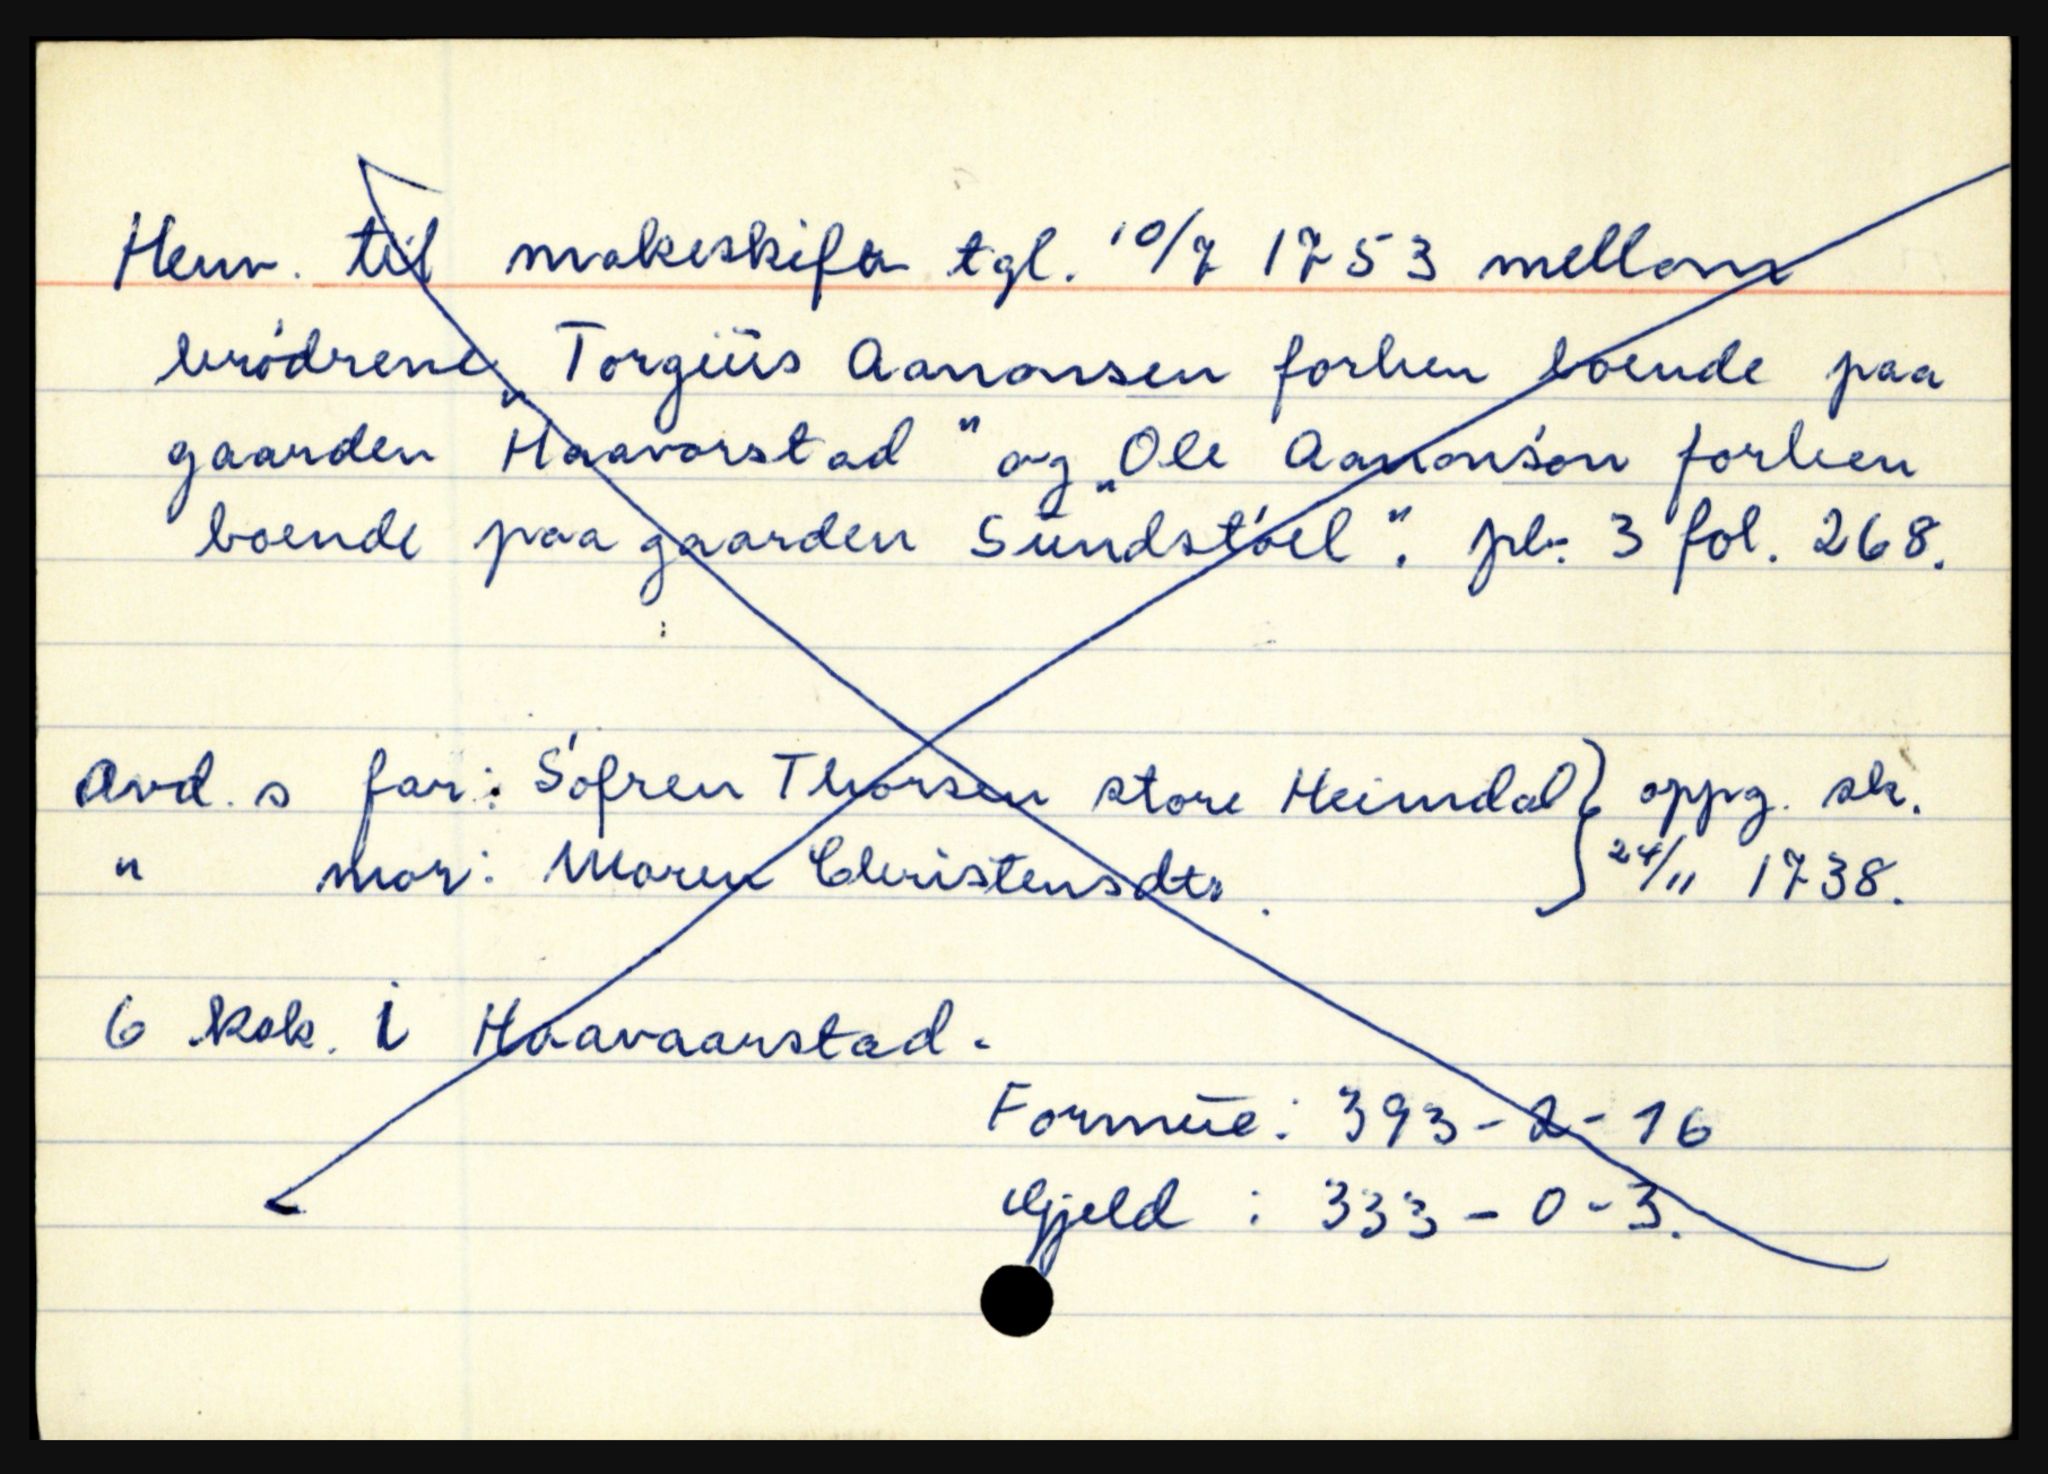 Henv. til makeskifte tgl. 10/7 1753 mellom
brödrene „Torgüs Aanonsen forhen boende paa
gaarden Haavorstad" og „Ole Aanonsön forhen
boende paa gaarden Sündstöel". pb. 3 fol. 268.
Avd. s far: Söfren Thorsen store Heimdal } oppg. sk.
" mor: Maren Christensdtr. } 24/11 1738.
6 kok. i Haavaarstad.
Formüe: 393-2-16
Gjeld : 333-0-3.